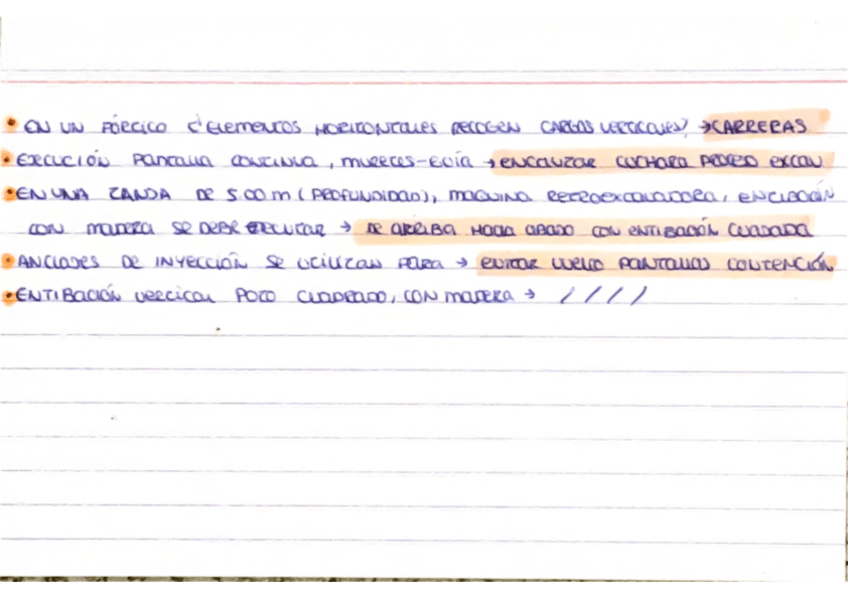 • EN UN PÓRTICO ¿ELEMENTOS HORIZONTALES RECOGEN CARGAS VERTICALES? → CARRERAS
• EXECUCIÓN PANTALLA CONTINUA, MURETES-GUÍA → ENCAUZAR CUCHARA PROCESO EXCAV
• EN UNA ZANJA DE 5.00 m (PROFUNDIDAD), MAQUINA RETROEXCAVADORA, ENTIBACIÓN
CON MADERA SE DEBE EJECUTAR → DE ARRIBA HACIA ABAJO CON ENTIBACIÓN CUAJADA
• ANCLAJES DE INYECCIÓN SE UTILIZAN PARA → EVITAR VUELCO PANTALLAS CONTENCIÓN
• ENTIBACIÓN VERTICAL POZO CUADRADO, CON MADERA → / / / /